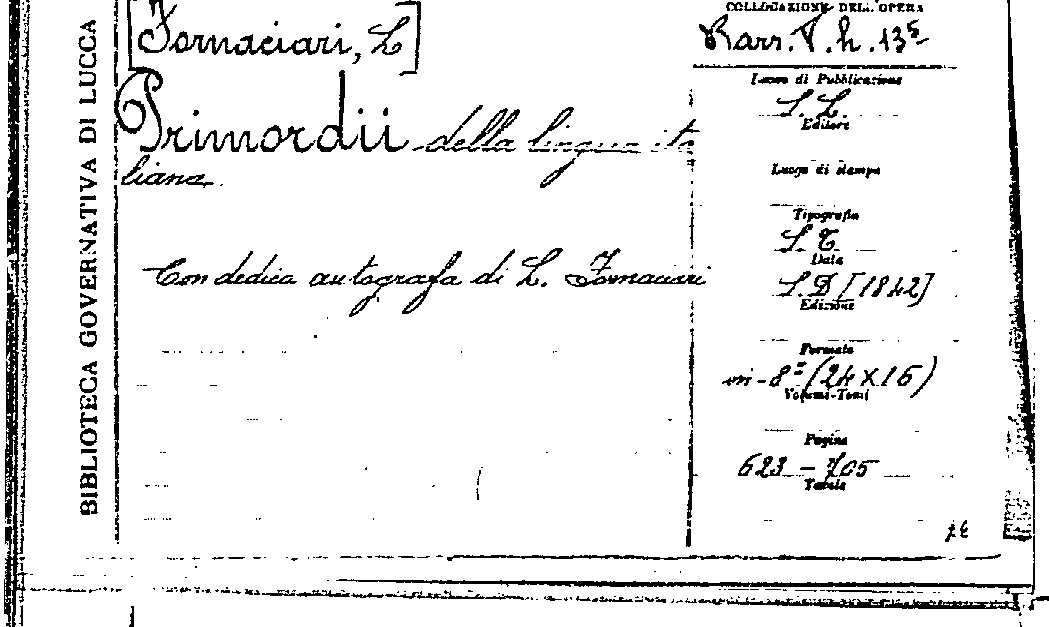 BIBLIOTECA GOVERNATIVA DI LUCCA
[Fornaciari, L]
Primordii della lingua ita
liana.
Con dedica autografa di L. Fornaciari
COLLOCAZIONE DELL'OPERA
Luogo di Pubblicazione
S. L.
Editore
Luogo di stampa
Tipografia
S. T.
Data
S. D [1842]
Edizione
Formato
in-8° (24 X 15)
Volumi-Tomi
Pagine
623 - 705
Tavole